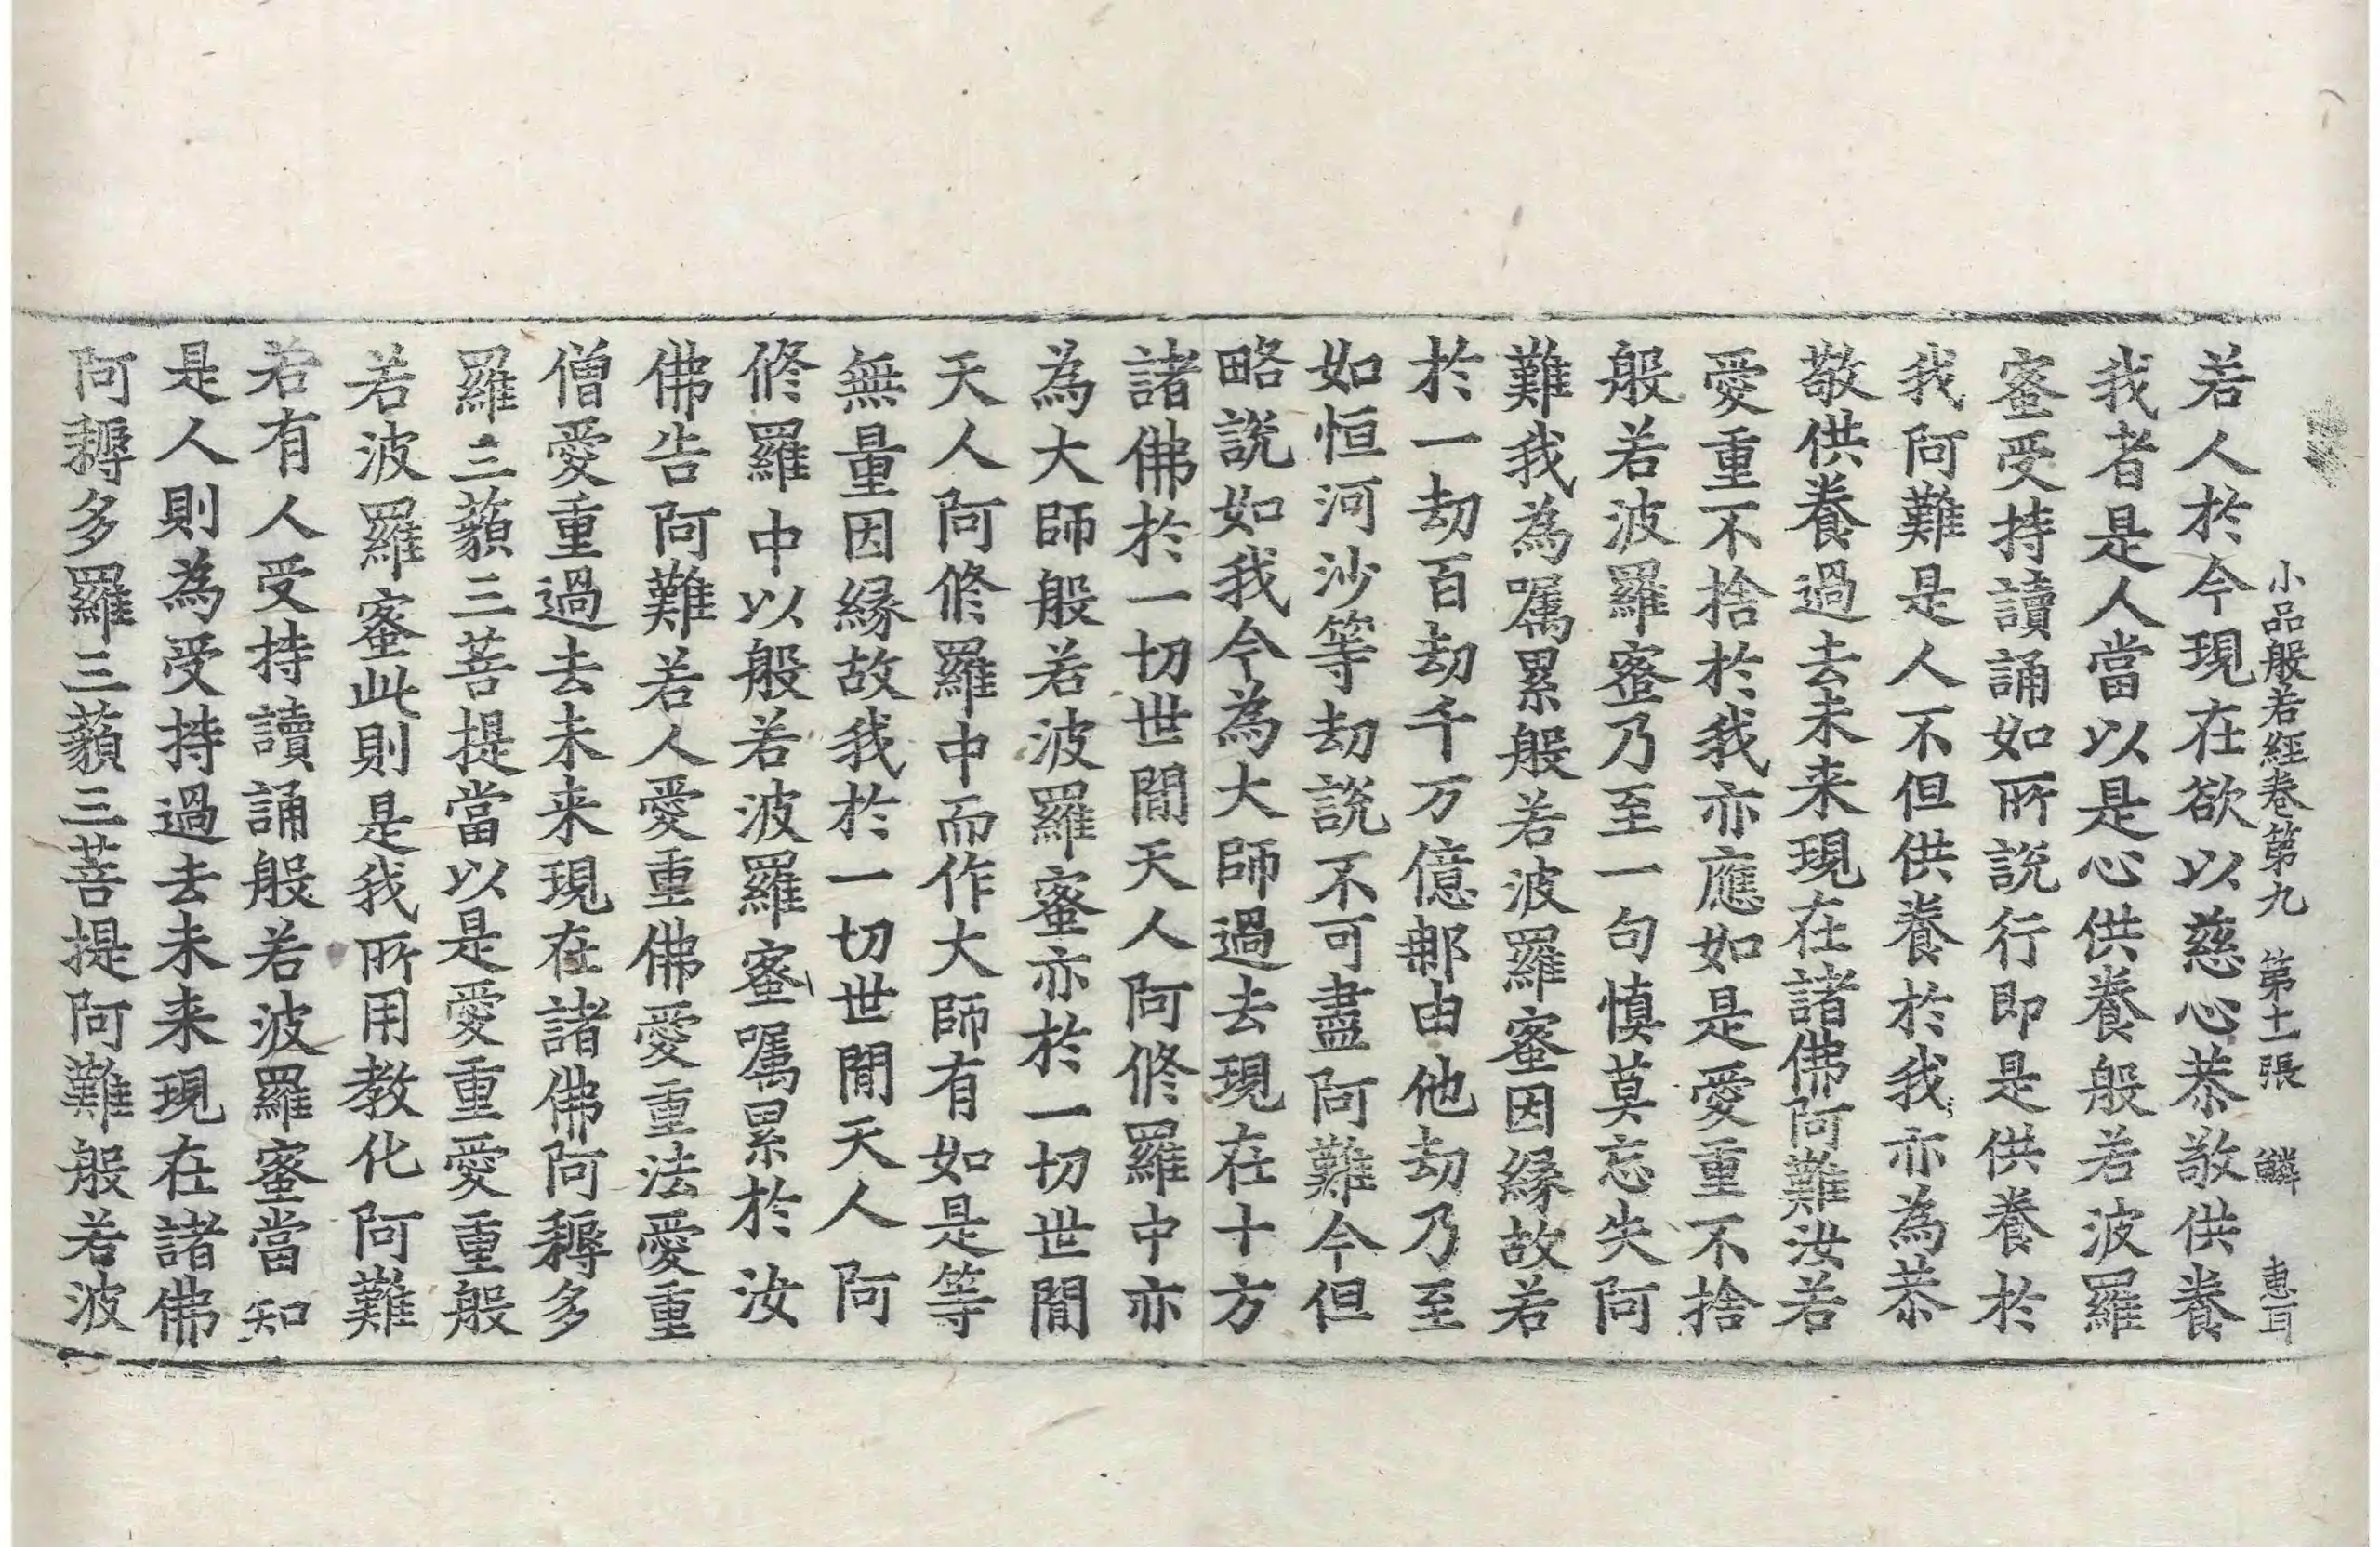 小品般若經卷第九 第十一張 鱗 惠可
若人於今現在欲以慈心恭敬供養
我者是人當以是心供養般若波羅
蜜受持讀誦如所說行即是供養於
我阿難是人不但供養於我亦為恭
敬供養過去未来現在諸佛阿難汝若
愛重不捨於我亦應如是愛重不捨
般若波羅蜜乃至一句慎莫忘失阿
難我為囑累般若波羅蜜因縁故若
於一劫百劫千万億那由他劫乃至
如恒河沙等劫說不可盡阿難今但
略說如我今為大師過去現在十方
諸佛於一切世間天人阿修羅中亦
為大師般若波羅蜜亦於一切世間
天人阿修羅中而作大師有如是等
無量因縁故我於一切世間天人阿
修羅中以般若波羅蜜囑累於汝
佛告阿難若人愛重佛愛重法愛重
僧愛重過去未来現在諸佛阿耨多
羅三藐三菩提當以是愛重愛重般
若波羅蜜此則是我所用教化阿難
若有人受持讀誦般若波羅蜜當知
是人則為受持過去未来現在諸佛
阿耨多羅三藐三菩提阿難般若波